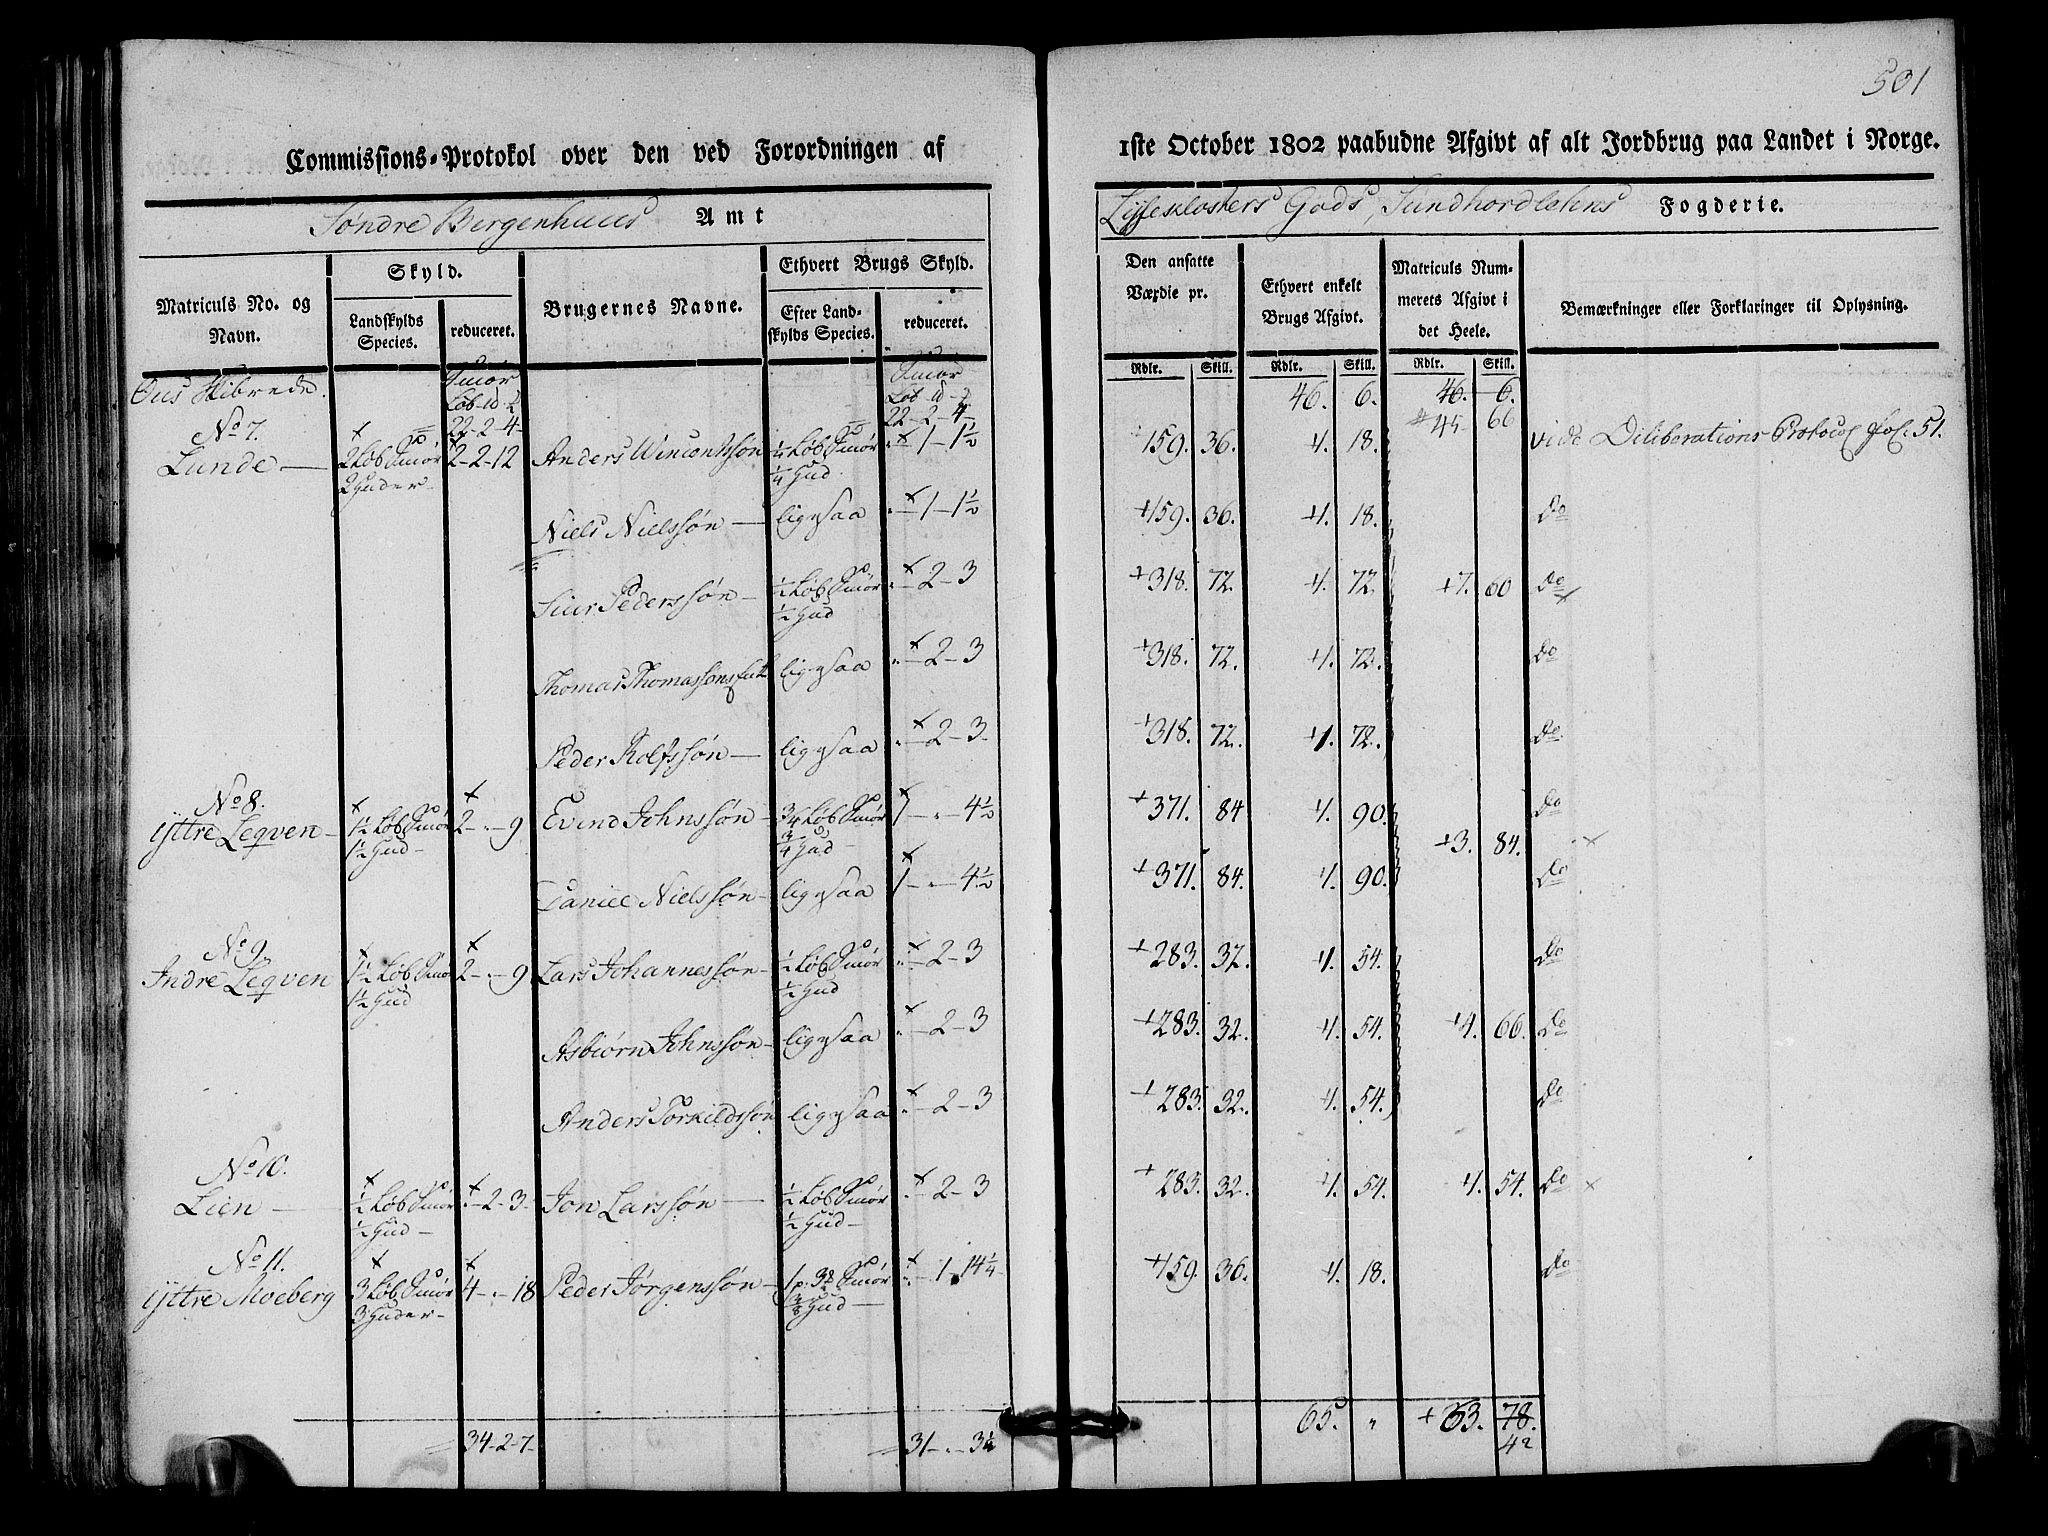 501
Commissions-Protokol over den ved Forordningen af 1ste October 1802 paabudne Afgivt af alt Jordbrug paa Landet i Norge.
Søndre Bergenhuus Amt Lyseklosters Gods, Sundhordlehns Fogderie.
Matriculs No. og Navn. Skyld. Landskylds Species. reduceret. Brugernes Navne. Ethvert Brugs Skyld. Efter Landskylds Species. reduceret. Den ansatte Værdie pr. Ethvert enkelt Brugs Afgivt. Matriculs Nummerets Afgivt i det Heele. Bemærkninger eller Forklaringer til Oplysning.
Rdlr. Skill. Rdlr. Skill. Rdlr. Skill.
Ous Skibrede. Smør Smør 46. 6. 46. 6.
22-2-4 22-2-4 45 66
No 7.
Lunde 2 Løb Smør 2-2-12 Anders Wincentssøn ¼ Løb Smør 1-1½ 159. 36. 1. 18. vide Deliberations Protocol fol. 51.
2 Huder ¼ Hud
Niels Nielssøn ligesaa 1-1½ 159. 36. 1. 18. do
Siur Pederssøn ½ Løb Smør 2-3 318. 72. 1. 72. 7. 60 do
½ Hud
Thomas Thomassøns ligesaa 2-3 318. 72. 1. 72. do
Peder Rolfssøn ligesaa 2-3 318. 72. 1. 72. do
No 8.
Yttre Leqven 1½ Løb Smør 2-"-9 Evind Johnssøn ¾ Løb Smør 1-"-4½ 371. 84 1. 90. do
1½ Hud ¾ Hud 3. 84.
Daniel Nielssøn ligesaa 1-"-4½ 371. 84. 1. 90. do
No 9.
Indre Leqven 1½ Løb Smør 2-"-9 Lars Johannessøn ½ Løb Smør "-2-3 283. 32. 1. 54. do
1½ Hud ½ Hud
Asbiørn Johnssøn ligesaa "-2-3 283. 32. 1. 54. 4. 66. do
Anders Torkildssøn ligesaa "-2-3 283. 32. 1. 54. do
No 10.
Lien ½ Løb Smør "-2-3 Jon Larssøn ½ Løb Smør "-2-3 283. 32. 1. 54. 1. 54. do
½ Hud ½ Hud
No 11.
Yttre Moeberg 3 Løb Smør 4-"-18 Peder Jørgenssøn 1 p. 3 Smør "-1-14¼ 159. 36. 1. 18. do
3 Huder ⅜ Hud
65. " 63. 78.
34-2-7 31-"-3¼ 42